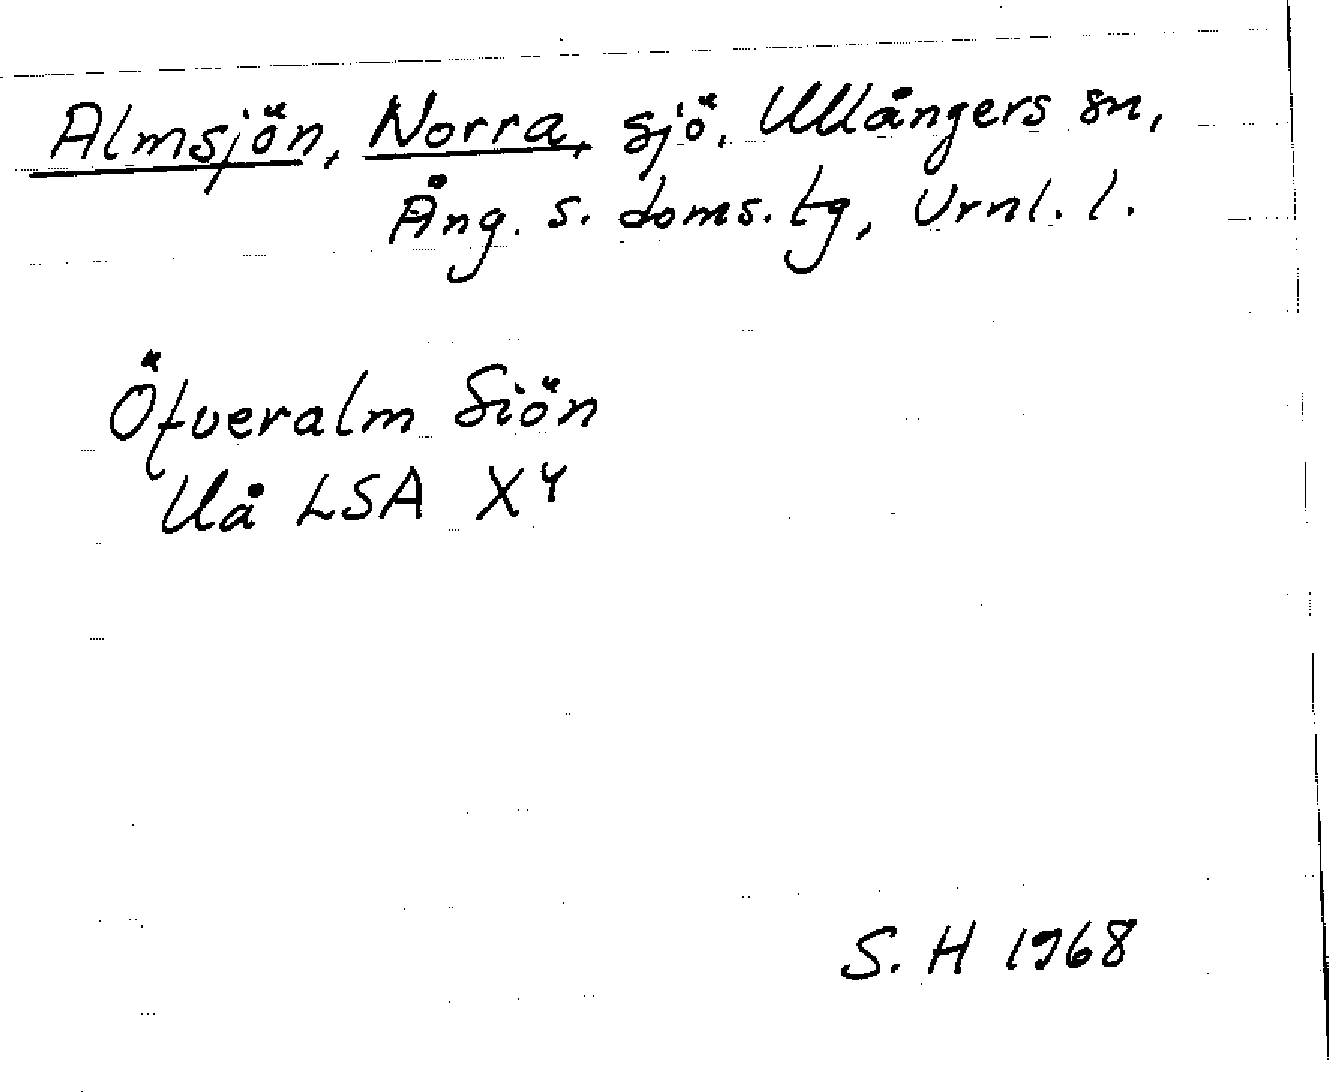 Almsjön, Norra, sjö, Ullångers sn,
Ång. s. doms. tg, Vrnl. l.
Öfveralm Siön
Uå LSA X4
S. H 1968